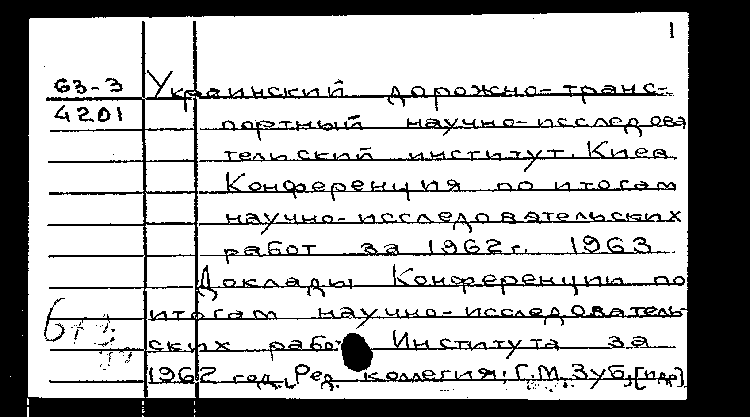 1
63-3
4201
Украинский дорожно-транс-
портный научно-исследова
тельский институт. Киев
Конференция по итогам
научно-исследовательских
работ за 1962 г. 1963
Доклады Конференции по
итогам научно-исследователь-
ских работ Института за
1962 год. Ред. коллегия: Г.М. Зуб, [и др]